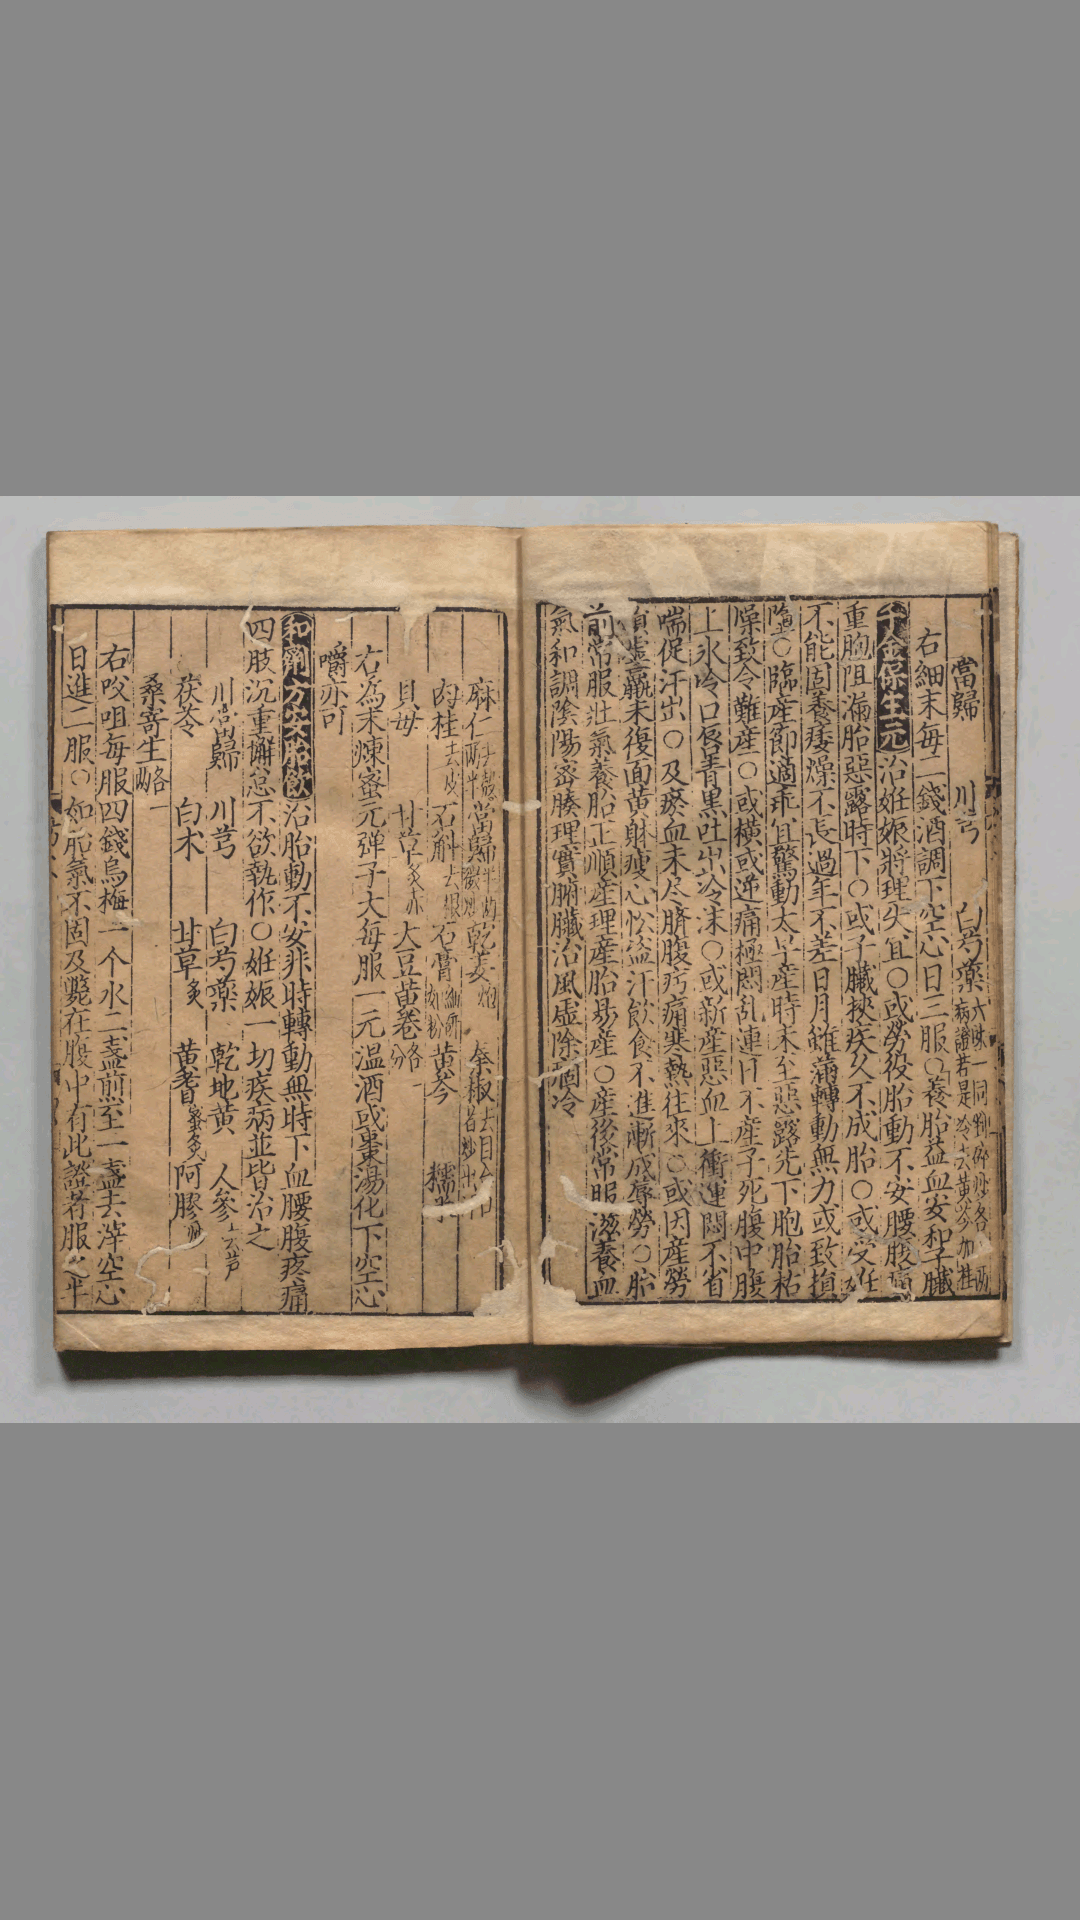 當歸 川芎 白芍藥
右細末每二錢酒調下空心日三服○養胎益血安和子臟
千金保生元治姙娠將理失宜○或勞役胎動不安腰腹痛
重胞阻漏胎惡露時下○或子臟挾疾久不成胎○或受姙
不能固養痿燥不長過年不差日月雖滿轉動無力或致損
墮○臨産節適乖宜驚動太早産時未至惡露先下胞胎枯
燥致令難産○或橫或逆痛極悶乱連日不産子死腹中腹
上氷冷口唇青黑吐出冷沫○或新産惡血上衝運悶不省
喘促汗出○及瘀血未尽臍腹疞痛寒熱往來○或因産勞
虛羸未復面黄躰瘦心忪盗汗飲食不進漸成辱勞○胎
前常服壮氣養胎正順産理産胎易産○産後常服滋養血
氣和調陰陽密腠理實腑臟治風虛除痼冷
麻仁 當歸 乾姜炮 秦椒
肉桂去皮 石斛去根 石膏 黄芩 糯米
貝母 甘草炙 大豆黄卷各一分
右為末煉蜜元弹子大每服一元温酒或棗湯化下空心
嚼亦可
和劑方安胎飲治胎動不安非時轉動無時下血腰腹疼痛
四肢沉重懈怠不欲執作○姙娠一切疾病並皆治之
川當歸 川芎 白芍藥 乾地黄 人參去芦
茯苓 白术 甘草炙 黄耆蜜炙 阿膠炒
桑寄生各一两
右㕮咀每服四錢烏梅一个水二盞煎至一盞去滓空心
日進二服○如胎氣不固及斃在腹中有此證者服之半